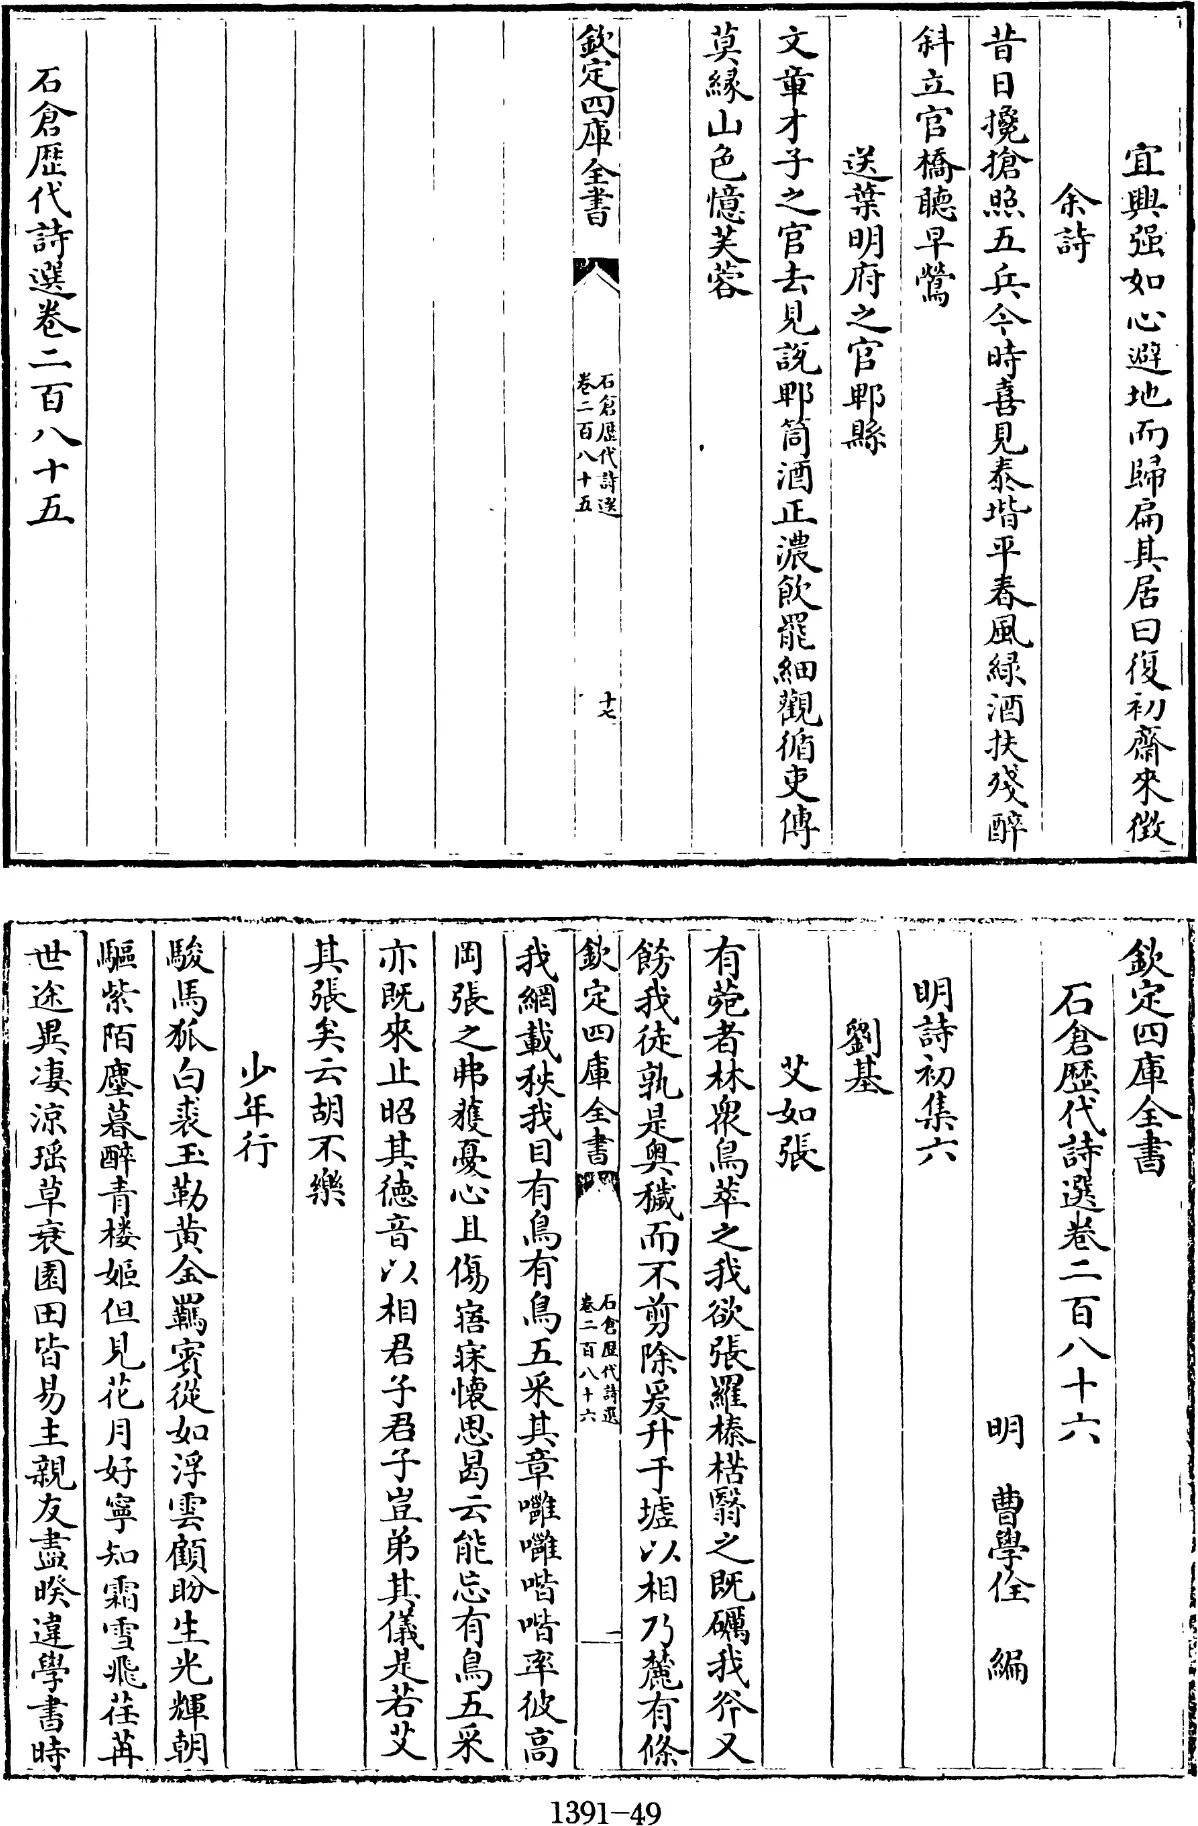 宜興强如心避地而歸扁其居曰復初齋來徵
余詩
昔日攙搶照五兵今時喜見泰堦平春風緑酒扶殘醉
斜立官橋聽早鶯
送葉明府之官郫縣
文章才子之官去見説郫筒酒正濃飲罷細觀循吏傳
莫緣山色憶芙蓉
欽定四庫全書
石倉歷代詩選
卷二百八十五
十七
石倉歷代詩選卷二百八十五
欽定四庫全書
石倉歷代詩選卷二百八十六
明 曹學佺 編
明詩初集六
劉基
艾如張
有菀者林衆鳥萃之我欲張羅榛楛翳之既礪我斧又
餝我徒孰是奥穢而不剪除爰升于墟以相乃麓有條
欽定四庫全書
石倉歷代詩選
卷二百八十六
一
我網載秩我目有鳥有鳥五采其章嗈嗈喈喈率彼高
岡張之弗獲憂心且傷寤寐懷思曷云能忘有鳥五采
亦既來止昭其德音以相君子君子豈弟其儀是若艾
其張矣云胡不樂
少年行
駿馬狐白裘玉勒黄金羈賓從如浮雲顧盼生光輝朝
驅紫陌塵暮醉青楼姬但見花月好寧知霜雪飛荏苒
世途異凄涼瑶草衰園田皆易主親友盡暌違學書時
1391-49